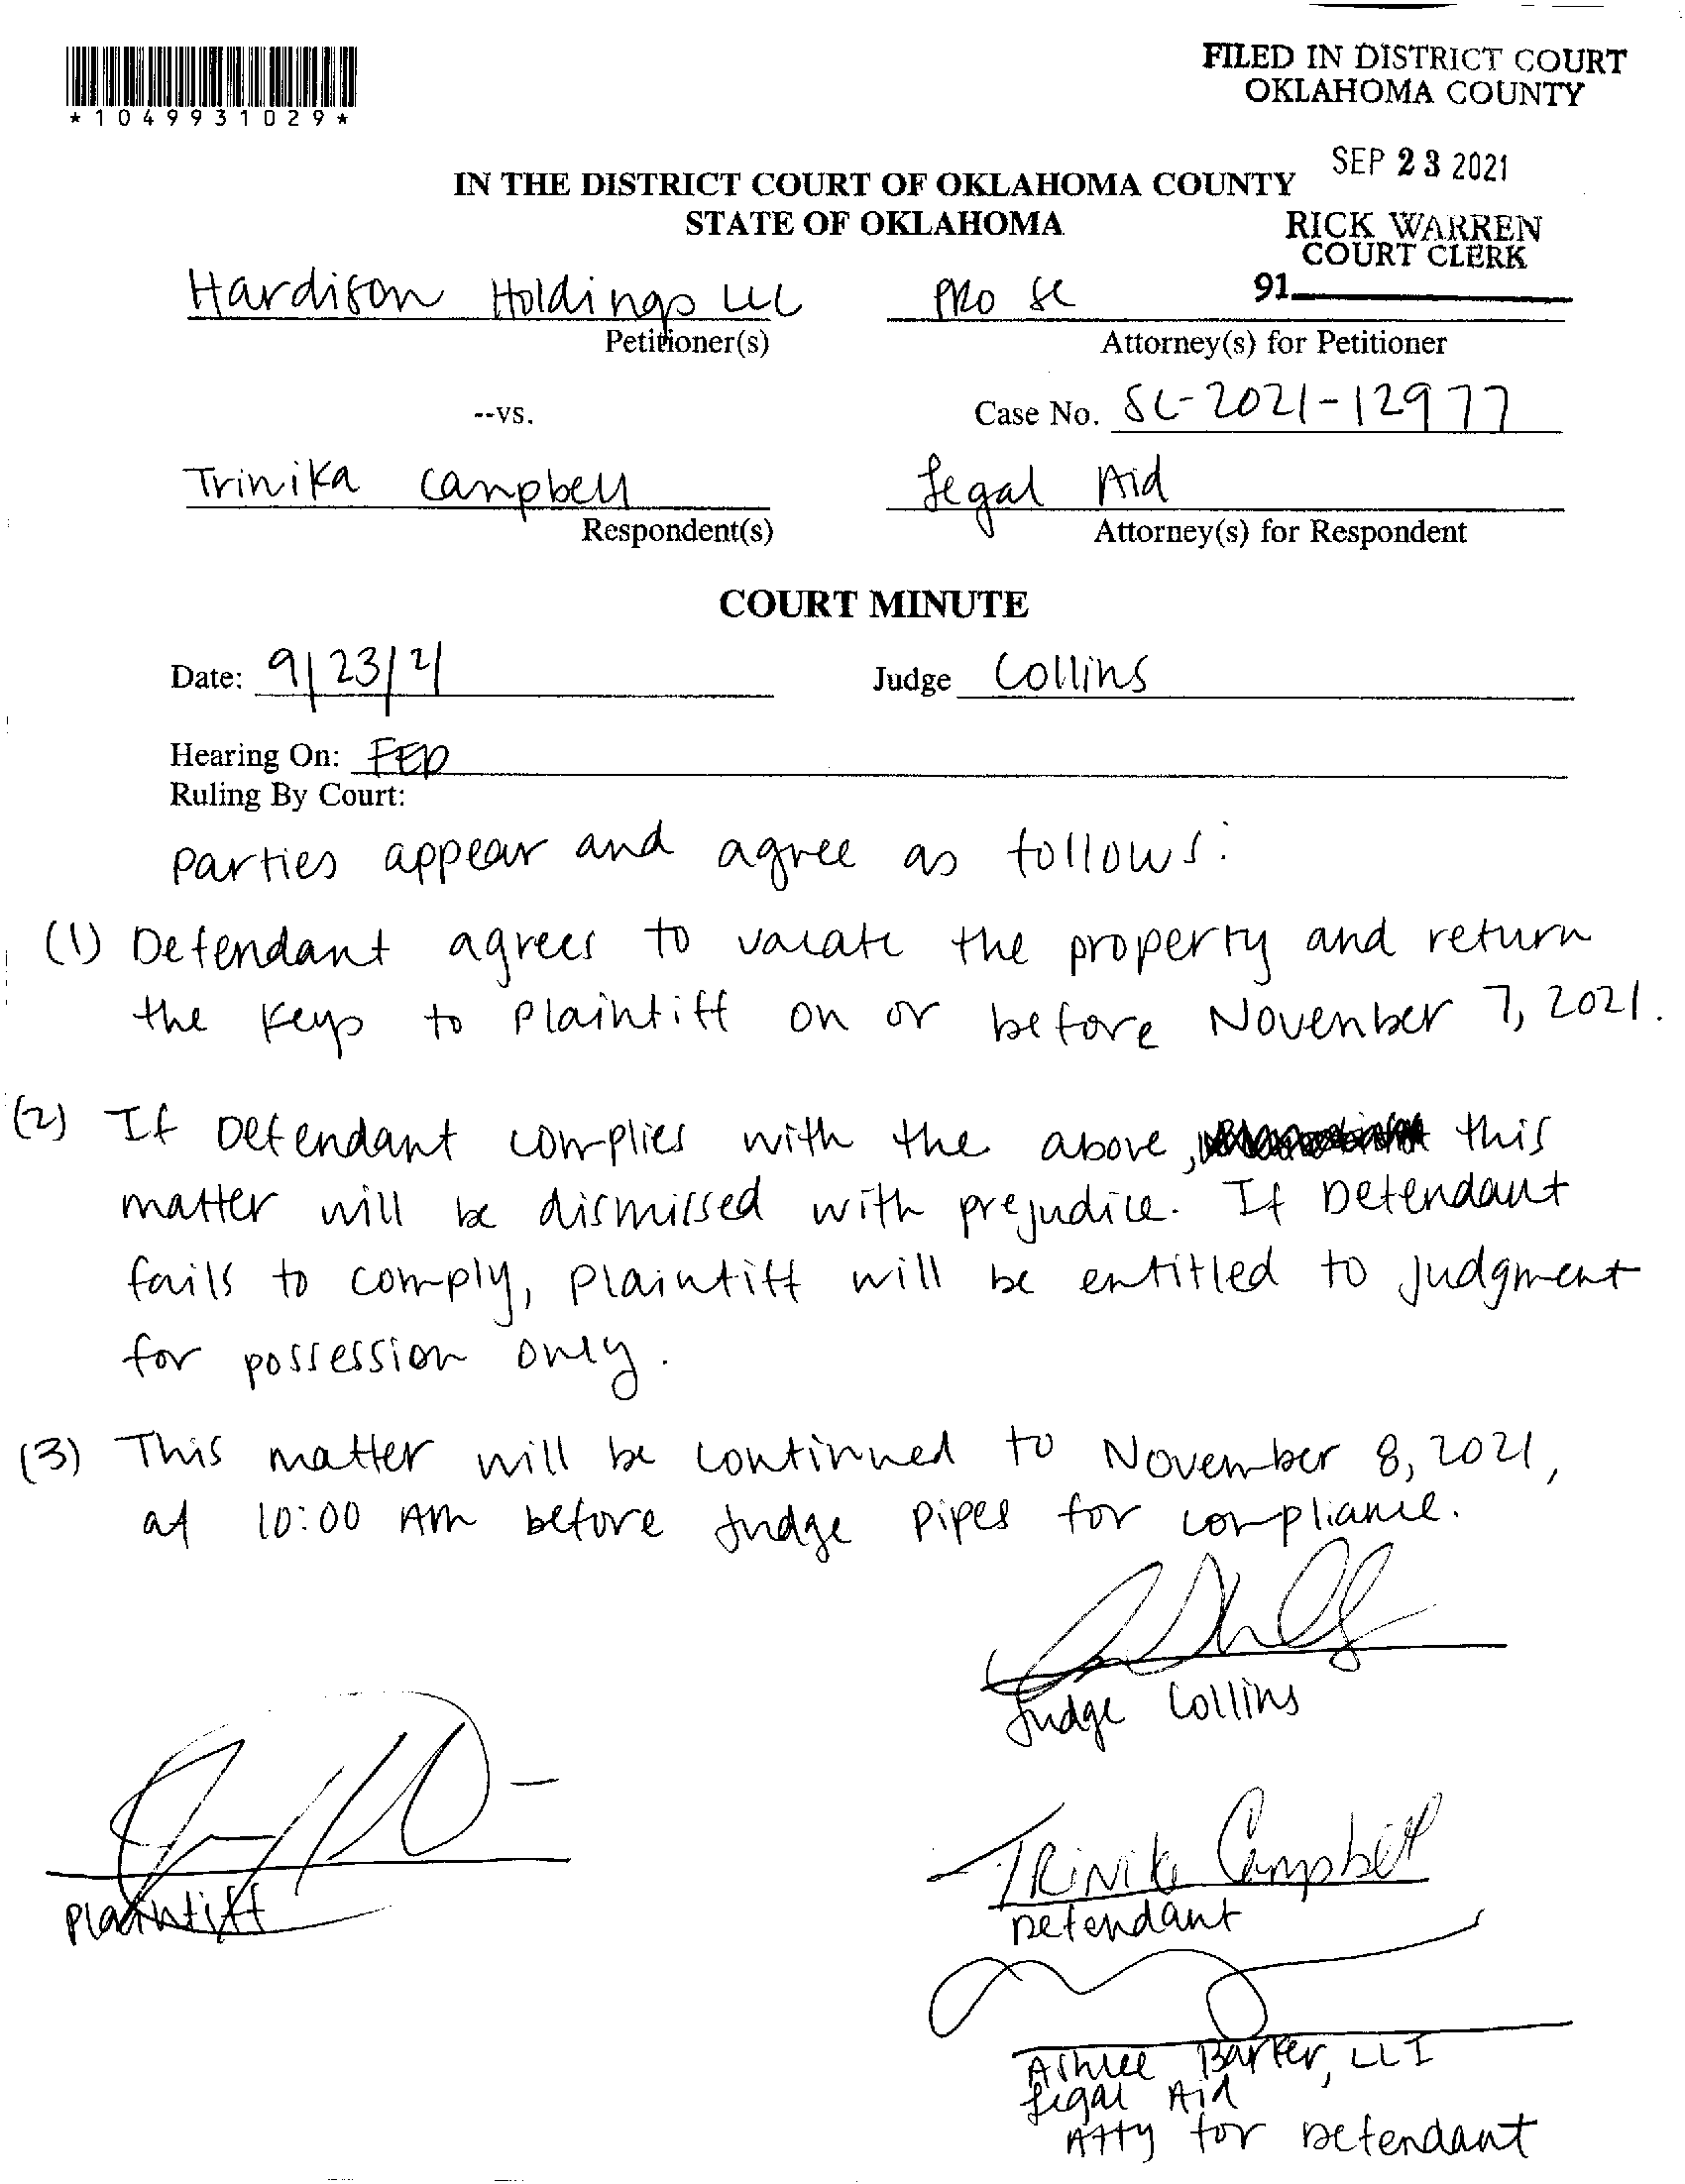 *1049931029*
FILED IN DISTRICT COURT
OKLAHOMA COUNTY
SEP 23 2021
IN THE DISTRICT COURT OF OKLAHOMA COUNTY
STATE OF OKLAHOMA
RICK WARREN
COURT CLERK
91
Hardison Holdings LLC
Petitioner(s)
Pro se
Attorney(s) for Petitioner
--vs.
Case No. SC-2021-12977
Trinika Campbell
Respondent(s)
Legal Aid
Attorney(s) for Respondent
COURT MINUTE
Date: 9/23/21
Judge Collins
Hearing On: FED
Ruling By Court:
Parties appear and agree as follows:
(1) Defendant agrees to vacate the property and return
the keys to Plaintiff on or before November 7, 2021.
(2) If Defendant complies with the above, this
matter will be dismissed with prejudice. If Defendant
fails to comply, Plaintiff will be entitled to judgment
for possession only.
(3) This matter will be continued to November 8, 2021,
at 10:00 AM before Judge Pipes for compliance.
Judge Collins
Plaintiff
Trinika Campbell
Defendant
Ashlee Barker, LLI
Legal Aid
Atty for Defendant